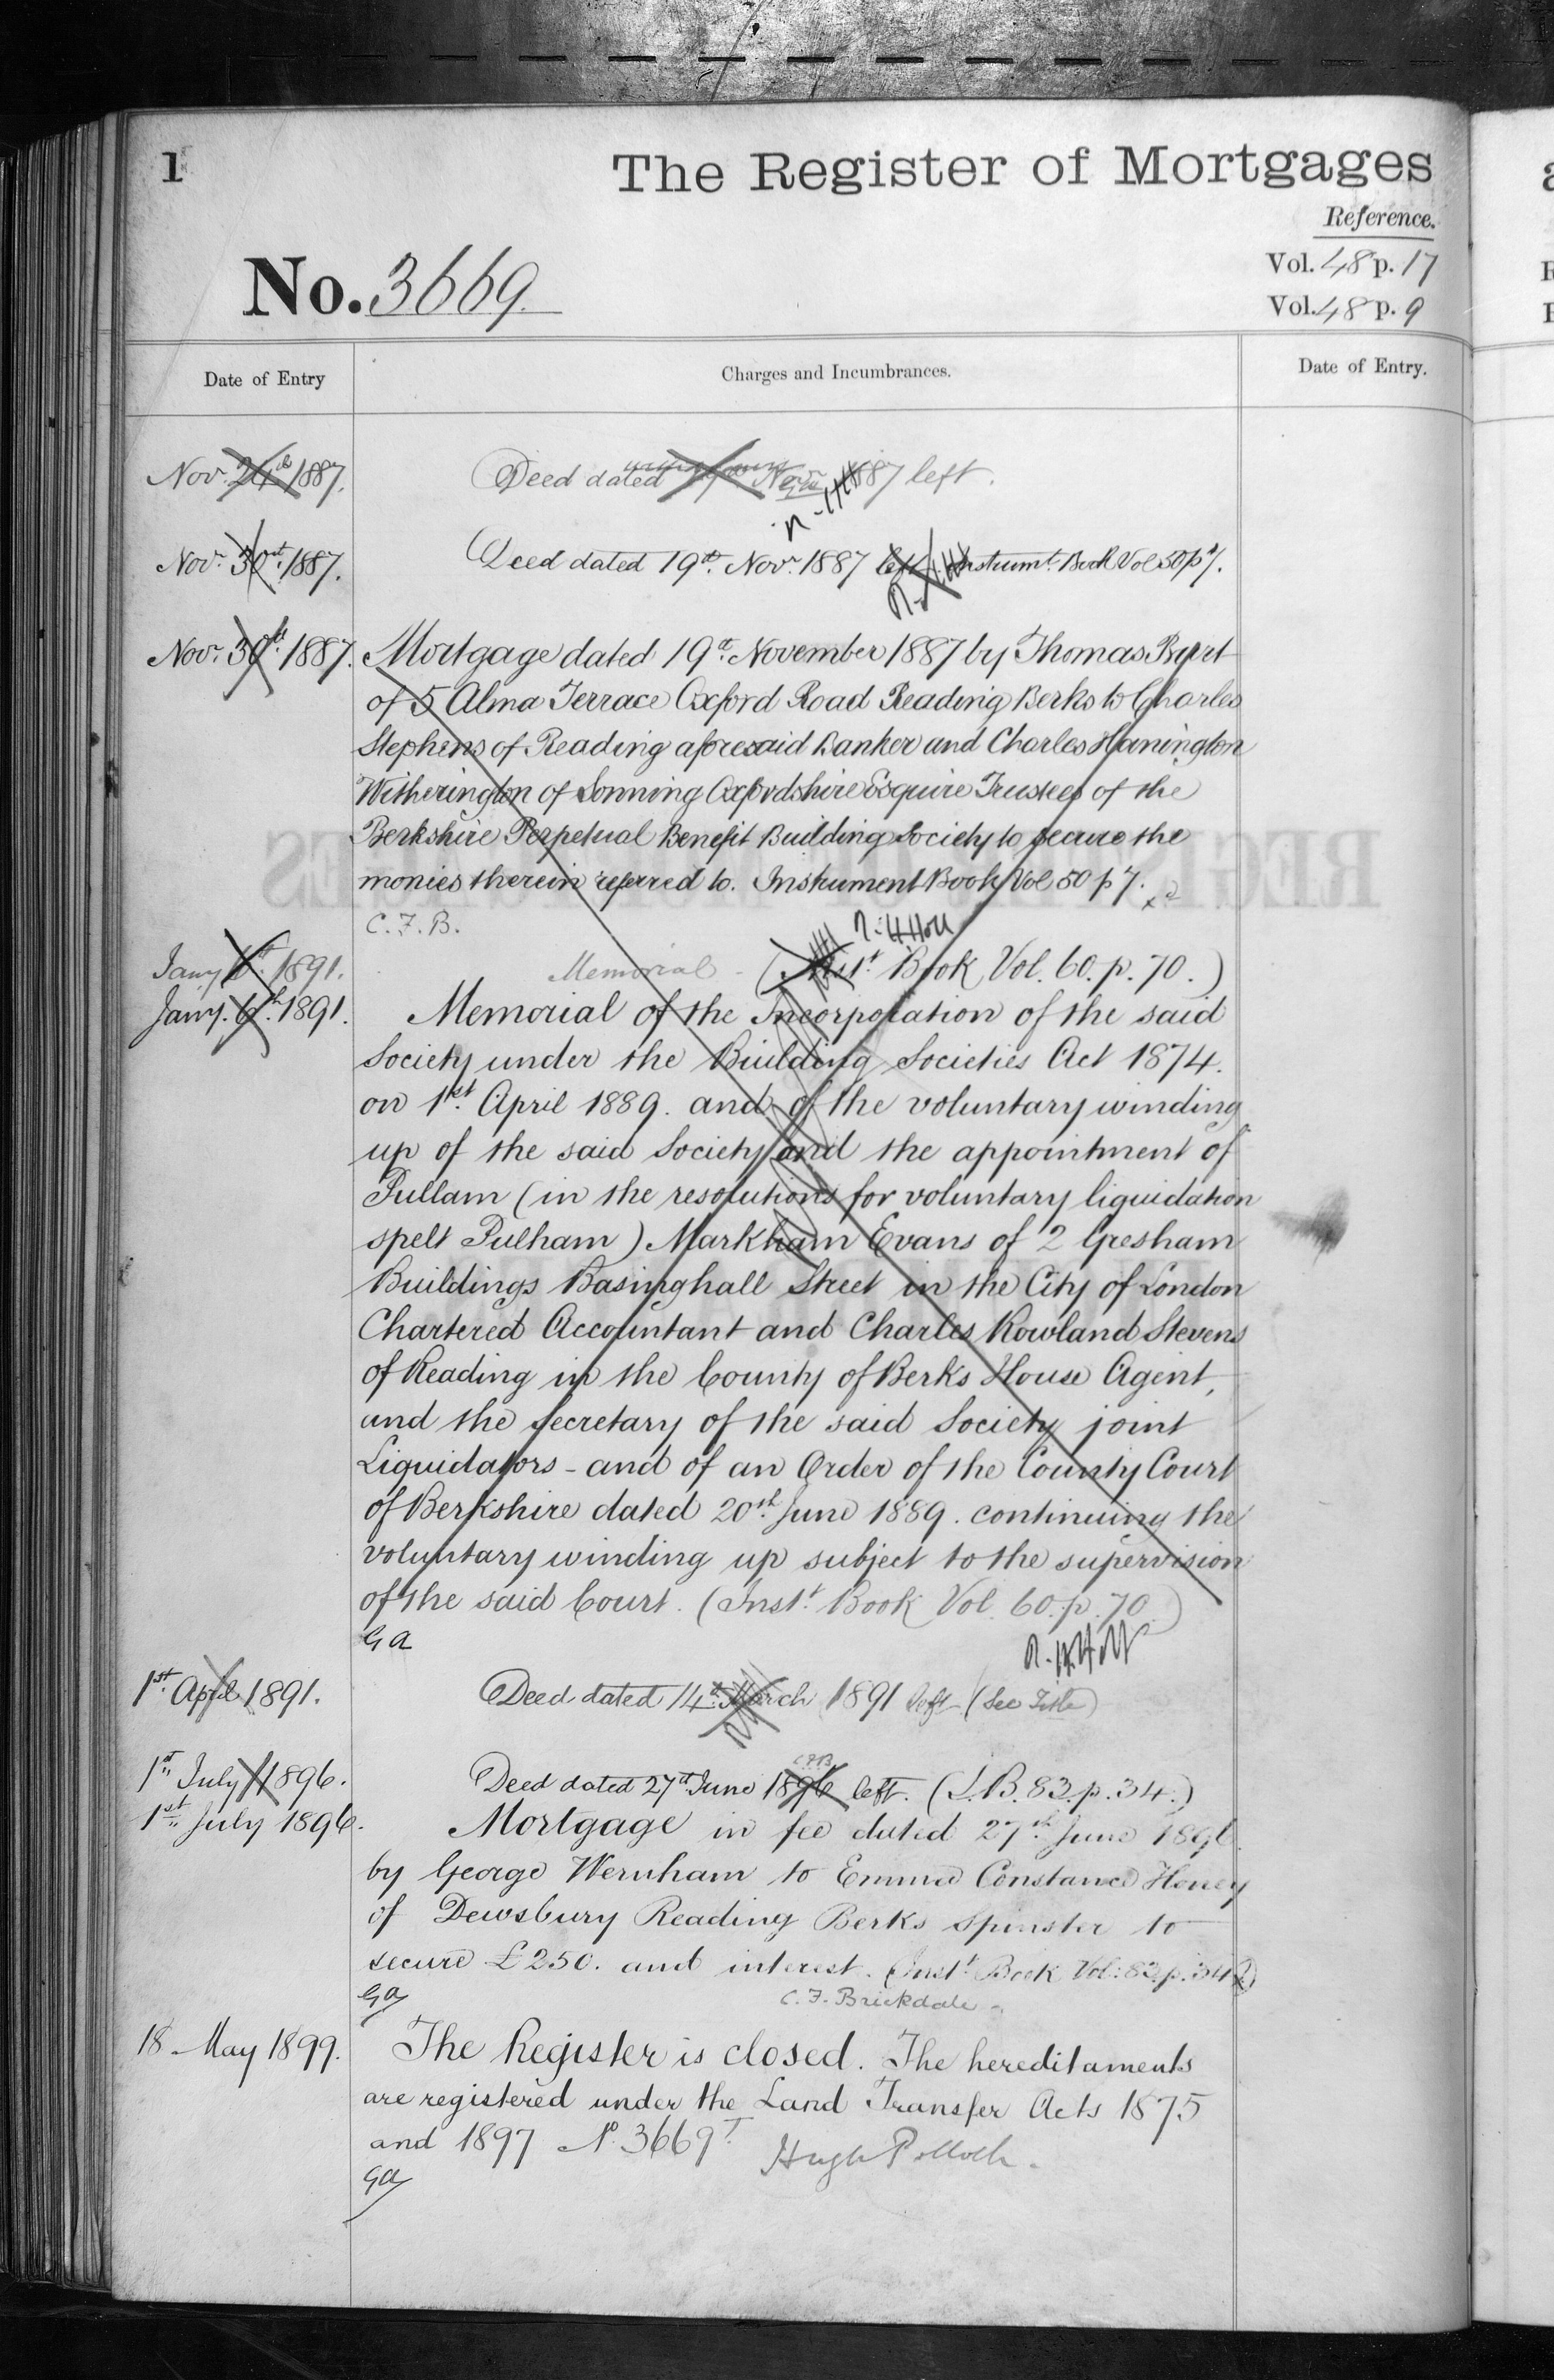 1
The Register of Mortgages
Reference.
No. 3669.
Vol. 48 p. 17
Vol. 48 p. 9
Date of Entry
Charges and Incumbrances.
Date of Entry.
Nov. 24th 1887. Deed dated Nov. 1887 left.
Nov. 30th 1887. Deed dated 19th Nov. 1887 left. Instrumt. Book Vol 50 p 7.
Nov. 30th 1887. Mortgage dated 19th November 1887 by Thomas Byrt
of 5 Alma Terrace Oxford Road Reading Berks to Charles
Stephens of Reading aforesaid Banker and Charles Hanington
Witherington of Sonning Oxfordshire Esquire Trustees of the
Berkshire Perpetual Benefit Building Society to secure the
monies therein referred to. Instrument Book Vol 50 p 7.
C. F. B.
R. H. Holt
Jany 1891. Memorial - (Inst. Book Vol. 60. p. 70.)
Jany. 6th. 1891. Memorial of the Incorporation of the said
Society under the Building Societies Act 1874.
on 1st. April 1889. and of the voluntary winding
up of the said Society and the appointment of
Pullam (in the resolutions for voluntary liquidation
spelt Pulham) Markham Evans of 2 Gresham
Buildings Basinghall Street in the City of London
Chartered Accountant and Charles Rowland Stevens
of Reading in the County of Berks House Agent,
and the Secretary of the said Society joint
Liquidators - and of an Order of the County Court
of Berkshire dated 20th. June 1889. continuing the
voluntary winding up subject to the supervision
of the said Court. (Inst. Book Vol. 60. p. 70.)
G A
R. H. Holt
1st. April 1891. Deed dated 14th March 1891 left (See Title)
C.F.B.
1st July 1896. Deed dated 27th June 1896 left. (I.B. 83. p. 34.)
1st July 1896. Mortgage in fee dated 27th June 1896
by George Wernham to Emma Constance Honey
of Dewsbury Reading Berks Spinster to
secure £250. and interest. (Inst. Book Vol: 83 p. 34)
GA
C. F. Brickdale
18 May 1899. The Register is closed. The hereditaments
are registered under the Land Transfer Acts 1875
and 1897 No. 3669T.
Hugh Pollock.
GA